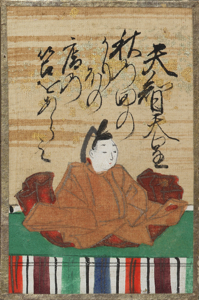 天智天皇
秋の田の
かりほの
庵の
苫をあらみ